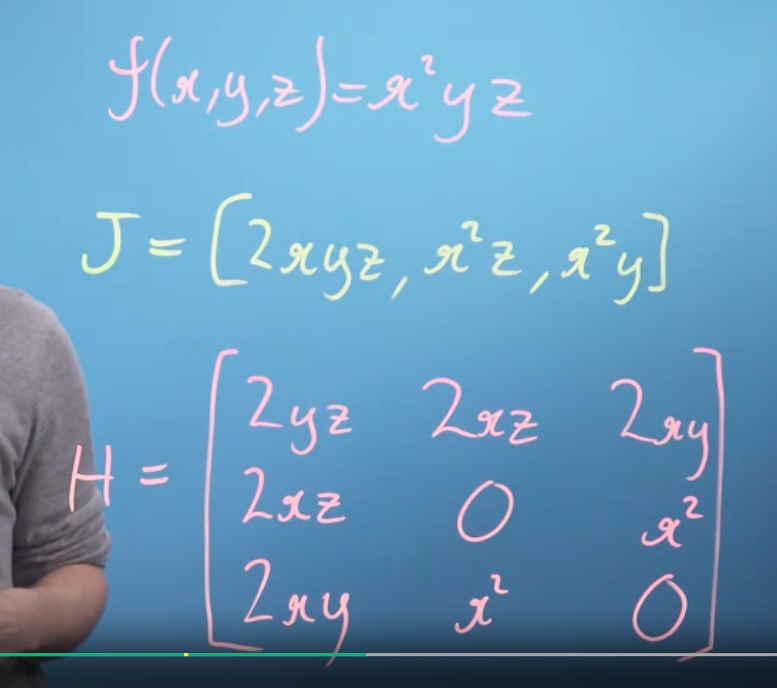 f(x,y,z)=x²yz
J = [2xyz, x²z, x²y]
H = [2yz 2xz 2xy
2xz 0 x²
2xy x² 0]